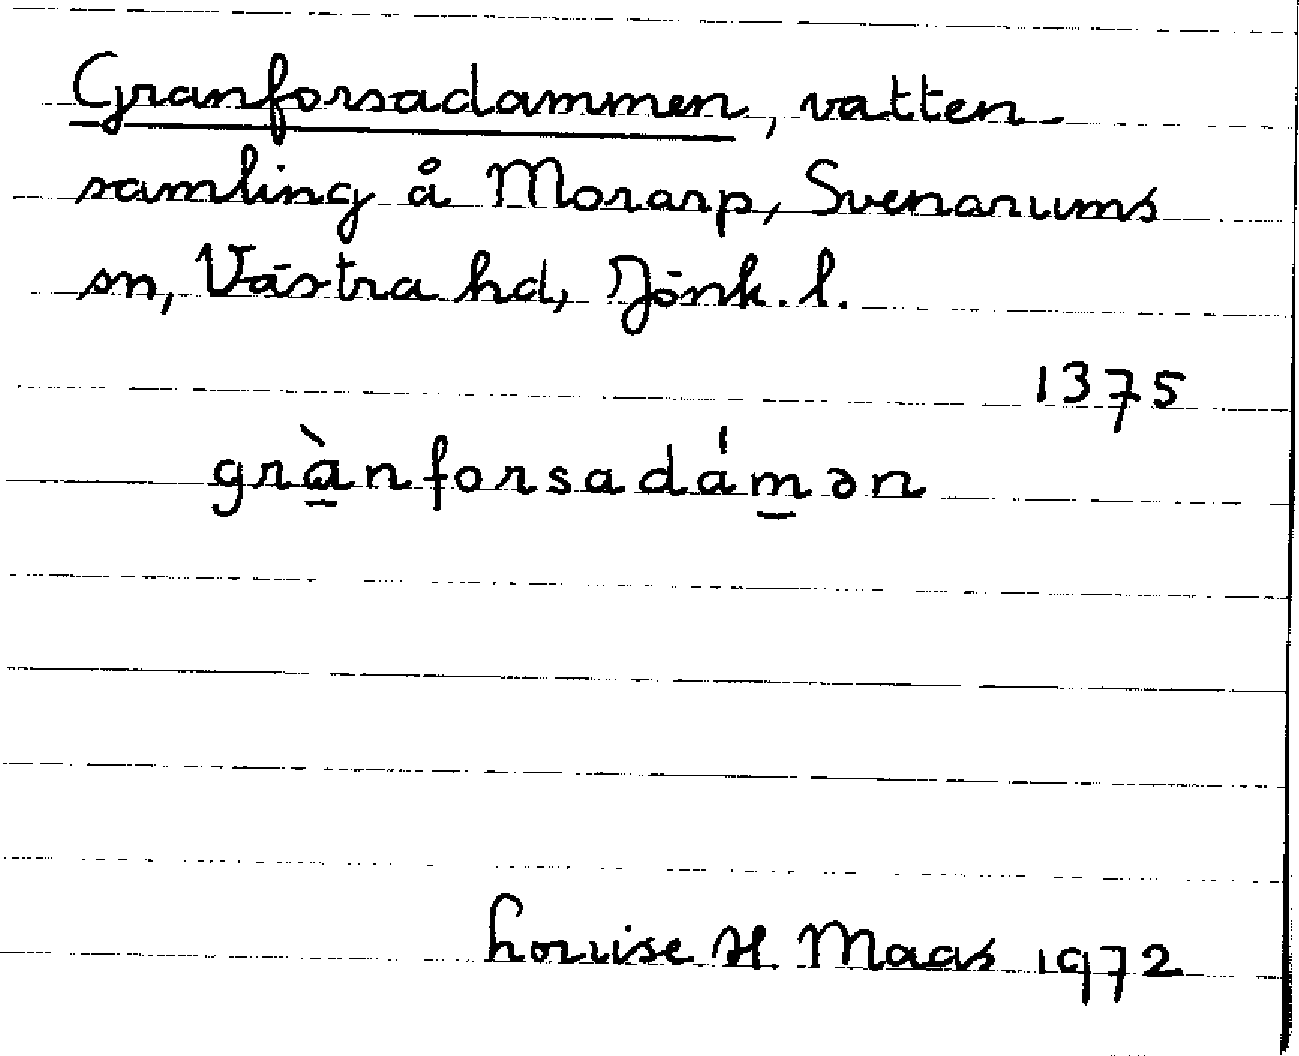 Granforsadammen, vatten-
samling å Morarp, Svenarums
sn, Västra hd, Jönk. l.
1375
grà̱nforsadám̱ən
Louise H. Maas 1972